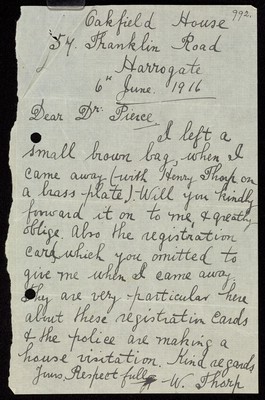 Oakfield House 992.
54. Franklin Road
Harrogate
6th June. 1916
Dear Dr. Pierce
I left a
small brown bag, when I
came away (with Henry Thorp on
a brass plate). Will you kindly
forward it on to me & greatly
oblige. Also the registration
card, which you omitted to
give me when I came away.
They are very particular here
about these registration cards
& the police are making a
house visitation. Kind regards
Yours Respectfully W. Thorp